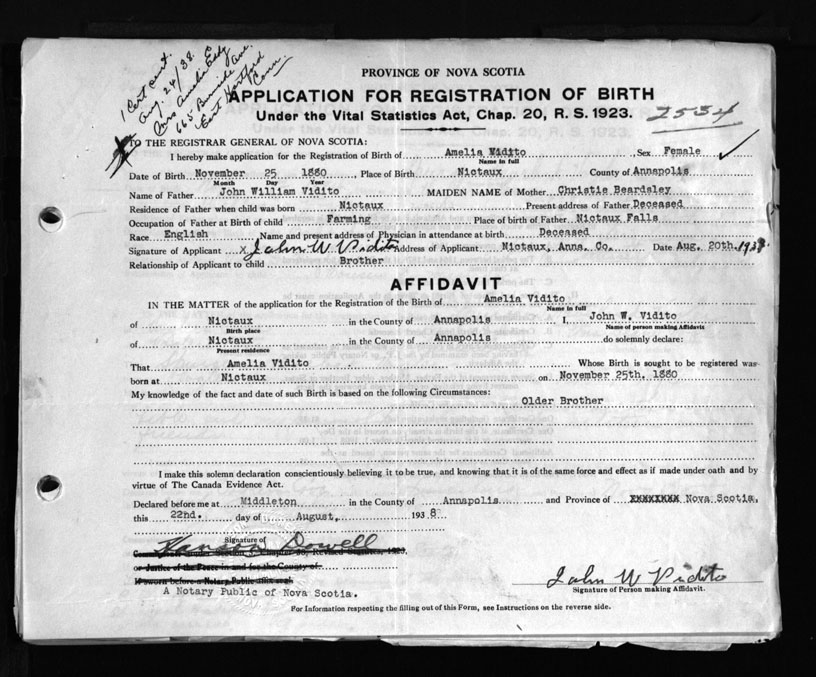 1 Cert sent.
Aug. 24/38. to
Mrs Amelia Eddy
665 Burnside Ave.
East Hartford
Conn.
PROVINCE OF NOVA SCOTIA
APPLICATION FOR REGISTRATION OF BIRTH
Under the Vital Statistics Act, Chap. 20, R. S. 1923.
2534
TO THE REGISTRAR GENERAL OF NOVA SCOTIA:
I hereby make application for the Registration of Birth of Amelia Vidito Sex Female
Name in full
Date of Birth November 25 1880 Place of Birth Nictaux County of Annapolis
Month Day Year
Name of Father John William Vidito MAIDEN NAME of Mother Christie Beardsley
Residence of Father when child was born Nictaux Present address of Father Deceased
Occupation of Father at Birth of child Farming Place of birth of Father Nictaux Falls
Race English Name and present address of Physician in attendance at birth Deceased
Signature of Applicant x John W Vidito Address of Applicant Nictaux, Anna. Co. Date Aug. 20th. 1938
Relationship of Applicant to child Brother
AFFIDAVIT
IN THE MATTER of the application for the Registration of the Birth of Amelia Vidito
Name in full
of Nictaux in the County of Annapolis I, John W. Vidito
Birth place Name of person making Affidavit
of Nictaux in the County of Annapolis do solemnly declare:
Present residence
That Amelia Vidito Whose Birth is sought to be registered was
born at Nictaux on November 25th, 1880
My knowledge of the fact and date of such Birth is based on the following Circumstances:
Older Brother
I make this solemn declaration conscientiously believing it to be true, and knowing that it is of the same force and effect as if made under oath and by
virtue of The Canada Evidence Act.
Declared before me at Middleton in the County of Annapolis and Province of XXXXXXXX Nova Scotia.
this 22nd. day of August, 1938
Signature of
Dowell
or Justice of the Peace in and for the County of
If sworn before a Notary Public affix seal
A Notary Public of Nova Scotia.
John W Vidito
Signature of Person making Affidavit.
For Information respecting the filling out of this Form, see Instructions on the reverse side.